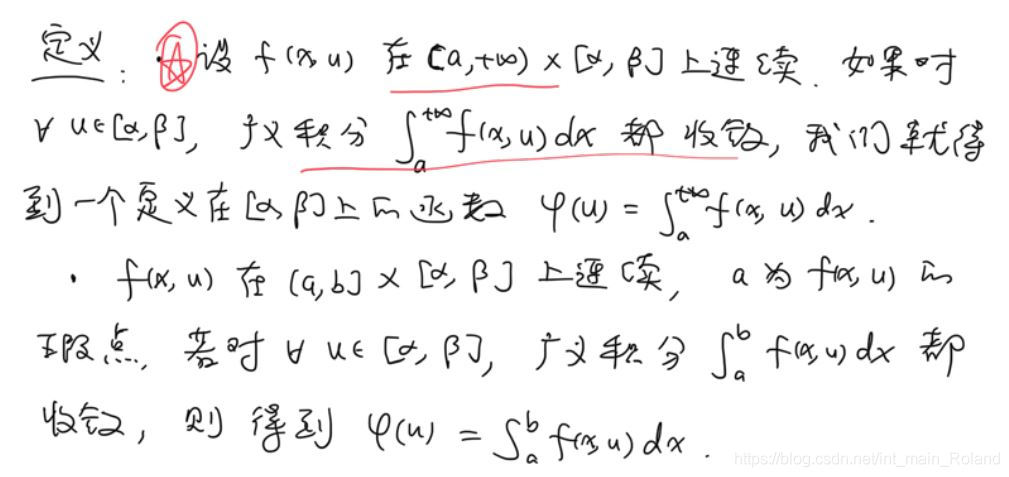 定义：设 f(x,u) 在 [a,+∞) × [α,β] 上连续. 如果对
∀ u∈[α,β], 广义积分 ∫ₐ^{+∞} f(x,u) dx 都收敛, 我们就得
到一个定义在[α,β]上的函数 φ(u) = ∫ₐ^{+∞} f(x,u) dx.
· f(x,u) 在 (a,b] × [α,β] 上连续, a 为 f(x,u) 的
瑕点, 若对 ∀ u∈[α,β], 广义积分 ∫ₐ^b f(x,u) dx 都
收敛, 则得到 φ(u) = ∫ₐ^b f(x,u) dx.
https://blog.csdn.net/int_main_Roland